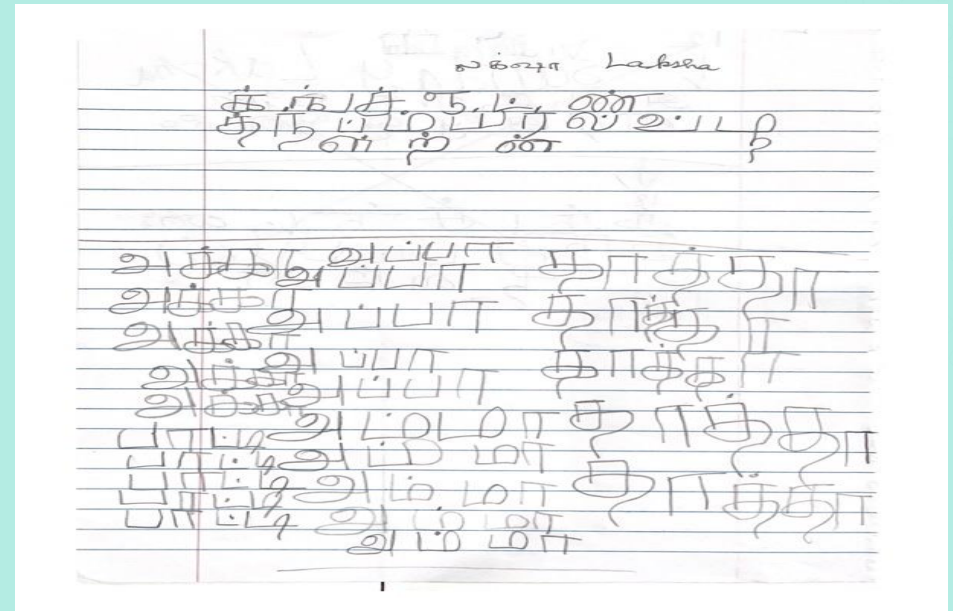 லக்ஷா Laksha
க் ங் ச் ஞ் ட் ண்
த் ந் ப் ம் ய் ர் ல் வ் ழ்
ள் ற் ன்
அக்கா அப்பா தாத்தா
அப்பா
அக்கா அப்பா தாத்தா
அக்கா அப்பா தாத்தா
அக்கா அப்பா
அக்கா அம்மா தாத்தா
பாட்டி அம்மா
பாட்டி அம்மா தாத்தா
பாட்டி அம்மா
பாட்டி அம்மா
பாட்டி